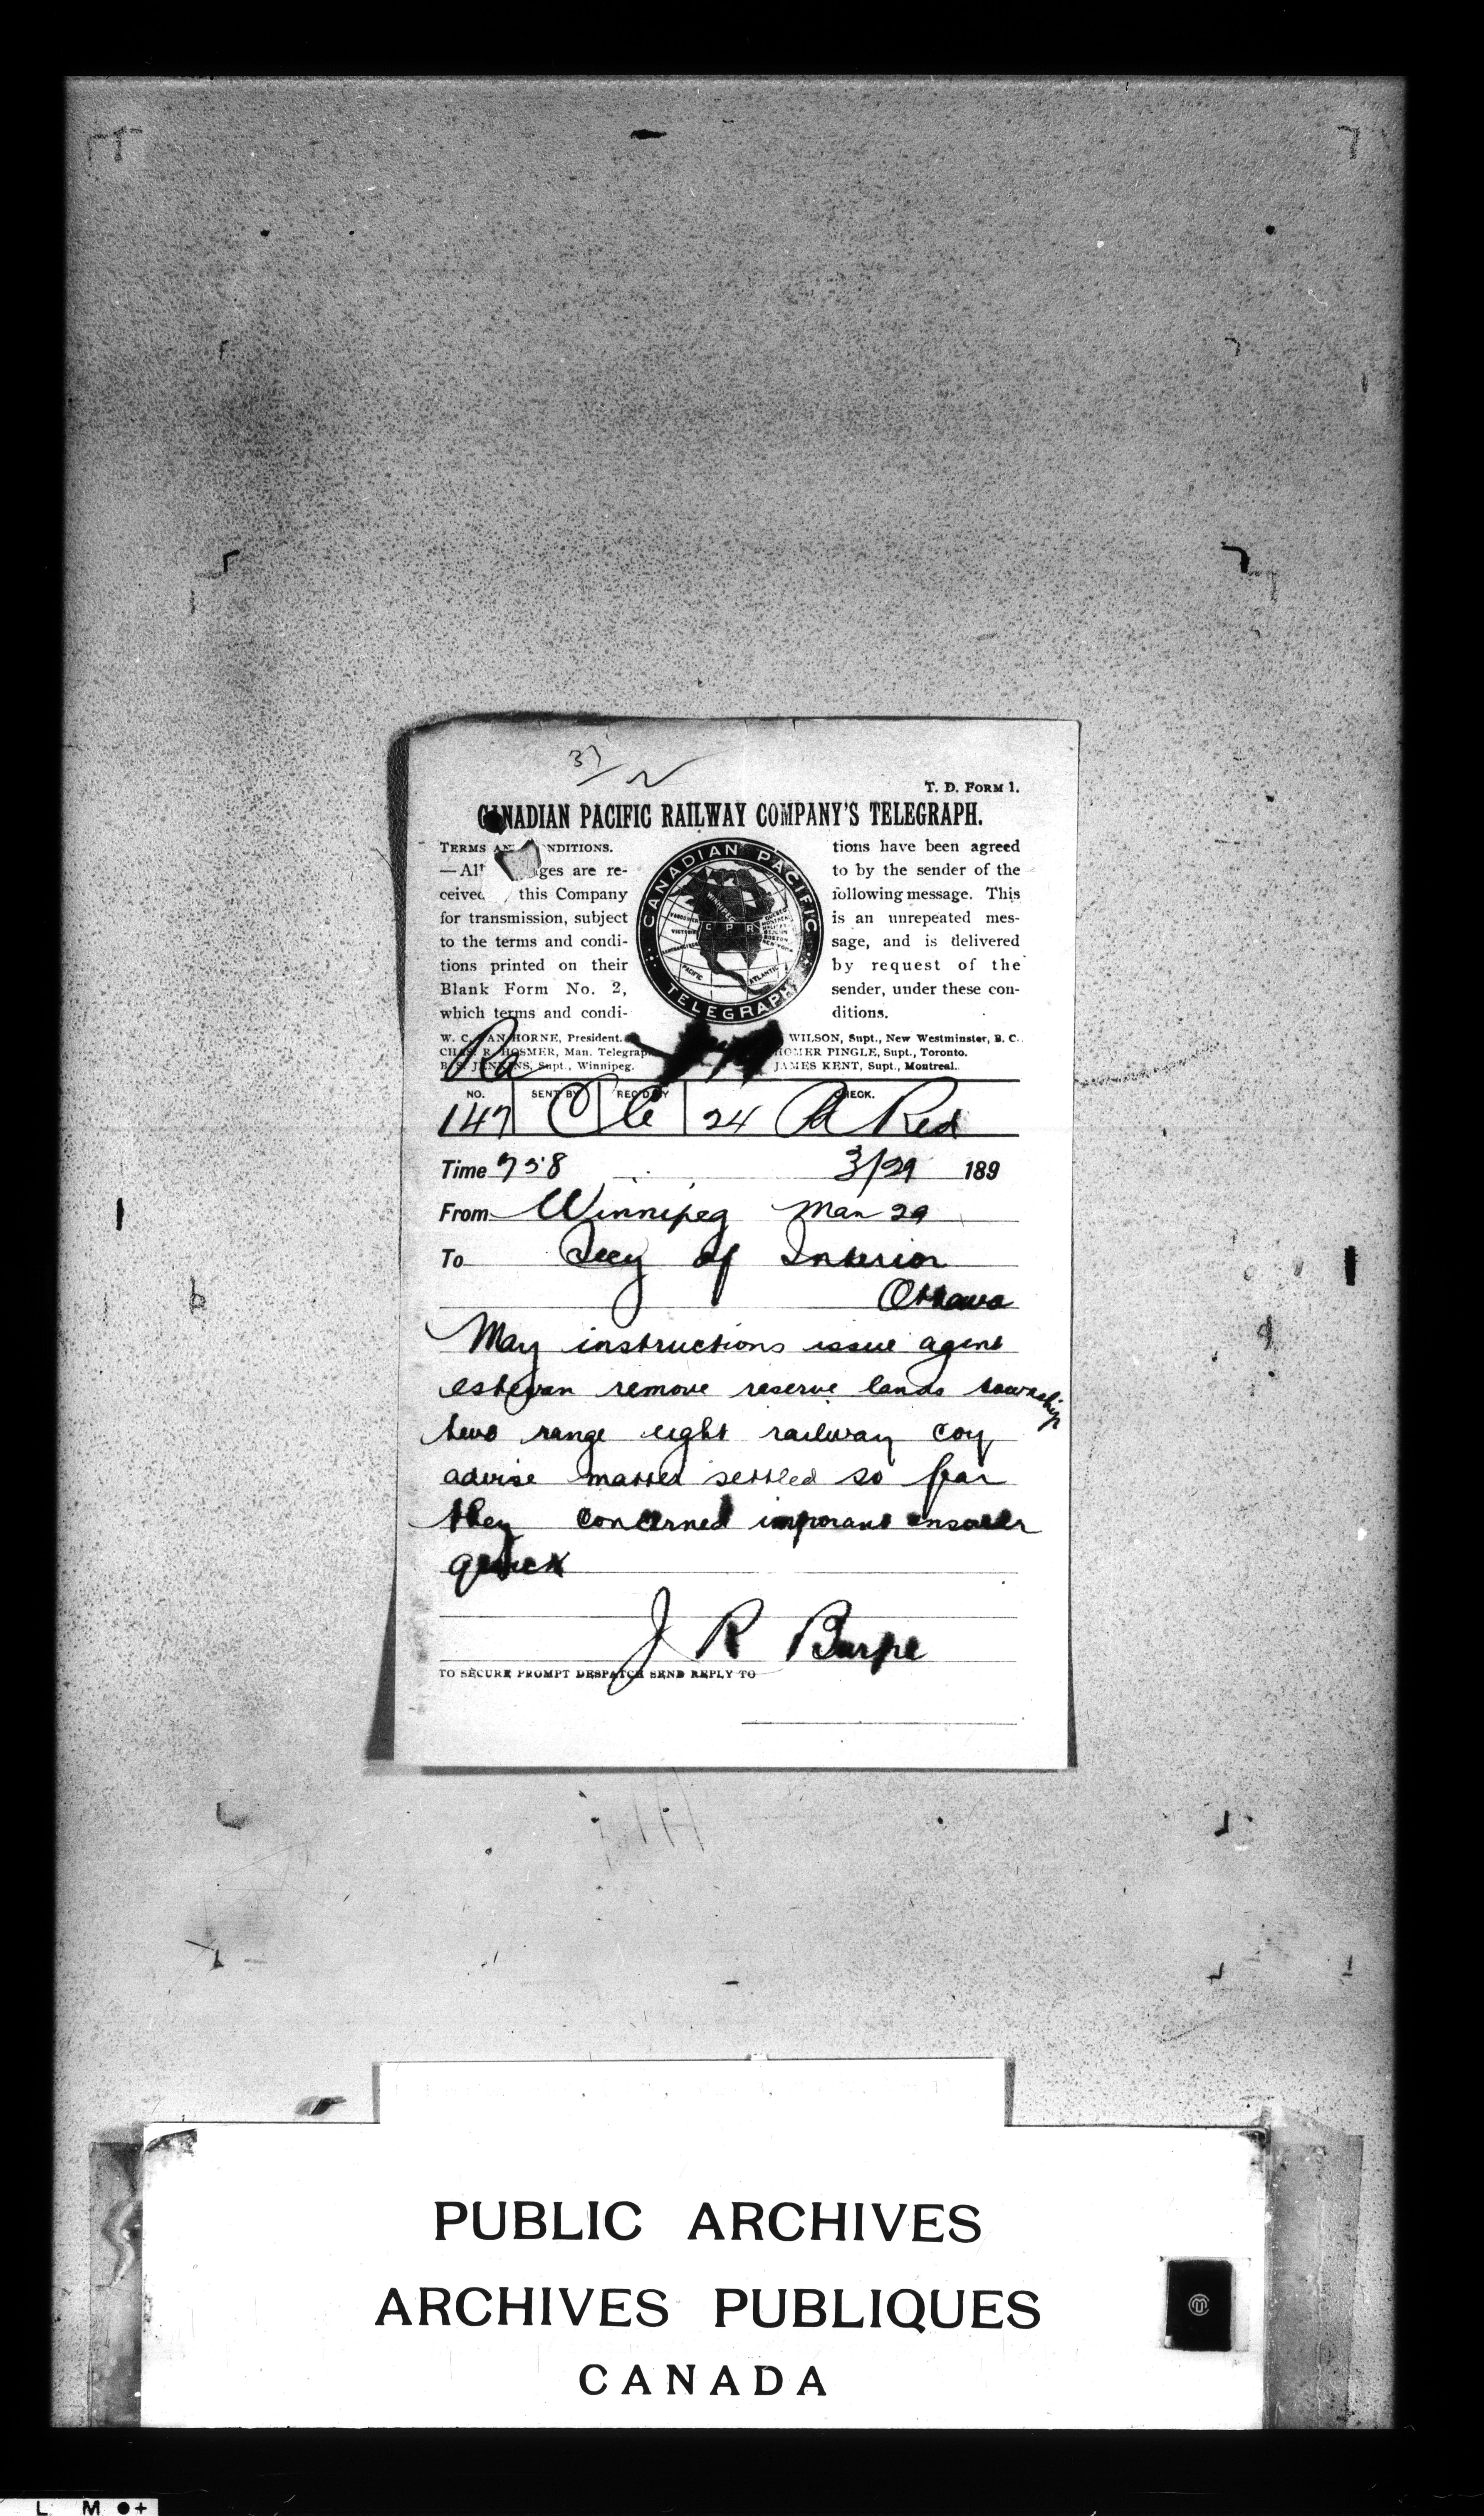 37
T. D. FORM 1.
CANADIAN PACIFIC RAILWAY COMPANY'S TELEGRAPH.
TERMS AN NDITIONS.
—All ges are re-
ceived this Company
for transmission, subject
to the terms and condi-
tions printed on their
Blank Form No. 2,
which terms and condi-
CANADIAN PACIFIC
WINNIPEG
C P R
PACIFIC
ATLANTIC
TELEGRAPH
tions have been agreed
to by the sender of the
following message. This
is an unrepeated mes-
sage, and is delivered
by request of the
sender, under these con-
ditions.
W. C. VAN HORNE, President.
CHAS. R. HOSMER, Man. Telegraph
B. S. JENKINS, Supt., Winnipeg.
WILSON, Supt., New Westminster, B. C.
HOMER PINGLE, Supt., Toronto.
JAMES KENT, Supt., Montreal.
Ra
NO. SENT BY REC'D BY CHECK.
147 24 Pd Red
Time 758 3/29 189
From Winnipeg Man 29
To Secy of Interior
Ottawa
May instructions issue agent
estevan remove reserve lands township
two range eight railway coy
advise matter settled so far
they concerned imporant answer
quick
J R Burpe
TO SECURE PROMPT DESPATCH SEND REPLY TO
PUBLIC ARCHIVES
ARCHIVES PUBLIQUES
CANADA
L M